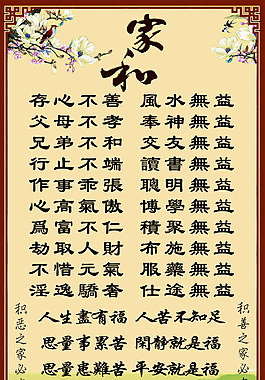 家和
存心不善 風水無益
父母不孝 奉神無益
兄弟不和 交友無益
行止不端 讀書無益
作事乖張 聰明無益
心高氣傲 博學無益
爲富不仁 積聚無益
劫取人財 布施無益
不惜元氣 服藥無益
淫逸驕奢 仕途無益
人生盡有福 人苦不知足
思量事累苦 閑靜就是福
思量患難苦 平安就是福
积恶之家必
积善之家必